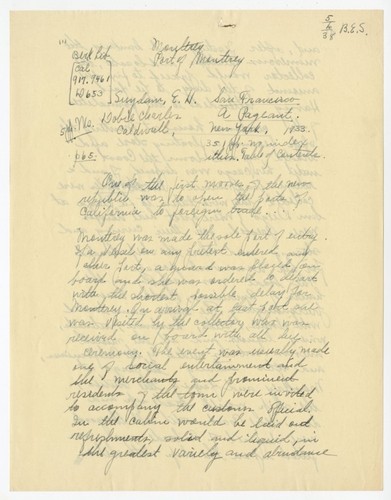 5/6/38 B.E.S.
(1)
Monterey
Port of Monterey
Berk Lib
Cal
917.9461
D653
Suydam, E. H. San Francisco
Dobie, Charles A Pageant.
Caldwell, New York, 1933.
351 pp. no index
Table of Contents.
p65.
One of the first moves of the new
republic was to open the ports of
California to foreign trade...
Monterey was made the sole port of entry.
If a vessel in any pretext entered any
other port, a guard was placed on
board and she was ordered to depart
with the shortest possible delay for
Monterey. On arrival at port
was visited by the collector who was
received on board with all due
ceremony. The event was usually made
one of social entertainment and
the merchants and prominent
residents of the town were invited
to accompany the customs official.
In the cabin would be laid out
refreshments, solid and liquid, in
the greatest variety and abundance